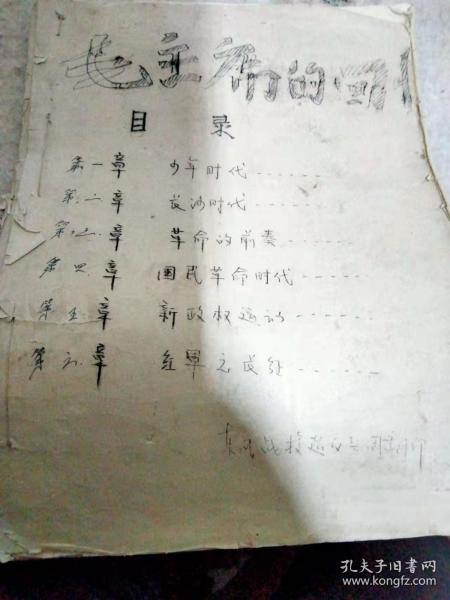 毛主席的
目 录
第一章 少年时代
第二章 长沙时代
第三章 革命的前奏
第四章 国民革命时代
第五章 新政权运动
第六章 红军之长征
孔夫子旧书网
www.kongfz.com